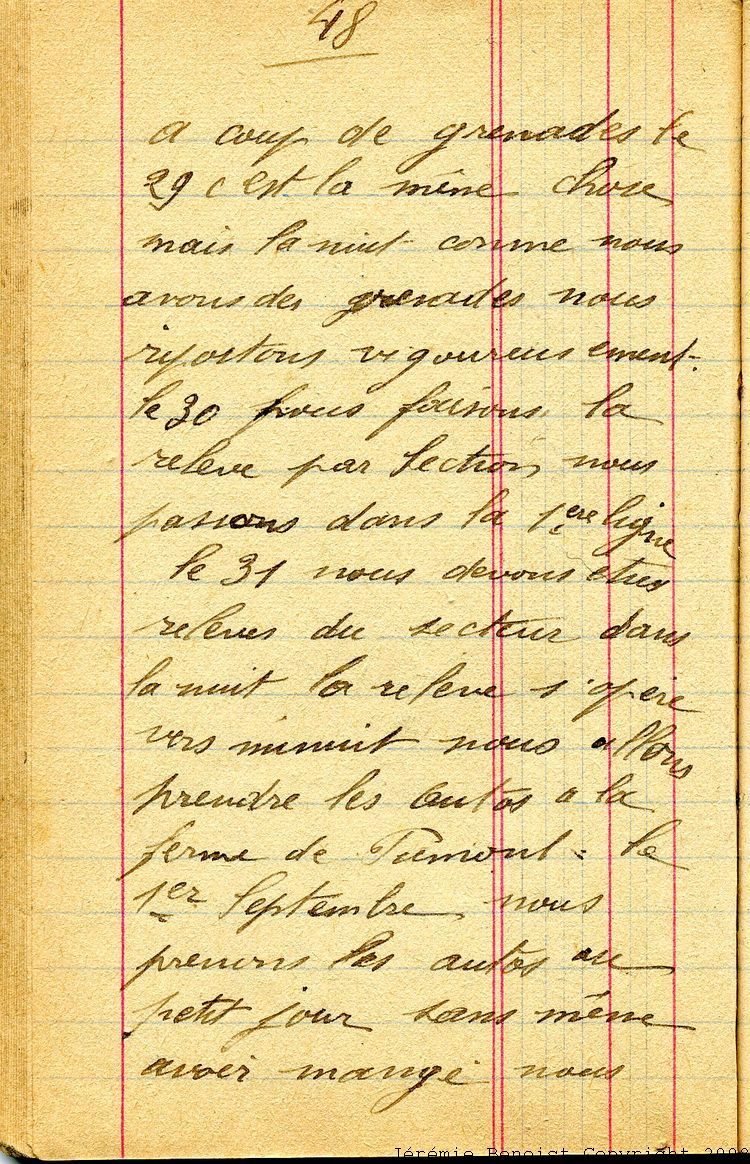 48
a coup de grenades le
29 c'est la même chose
mais la nuit comme nous
avons des grenades nous
ripostons vigoureusement.
le 30 nous faisons la
relève par section, nous
passons dans la 1ere ligne
le 31 nous devons être
relevés du secteur dans
la nuit la relève s'opère
vers minuit nous allons
prendre les autos a la
ferme de = le
1er Septembre nous
prenons les autos au
petit jour sans même
avoir mangé nous
Jérémie Benoist Copyright